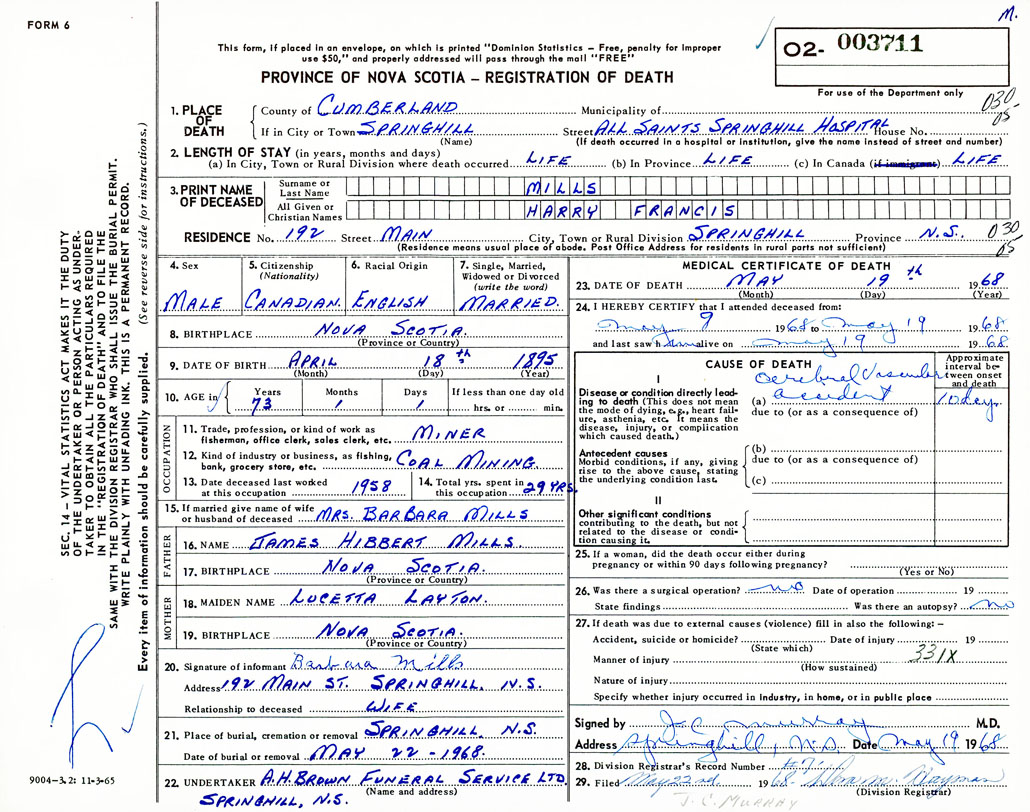 FORM 6
M.
This form, if placed in an envelope, on which is printed "Dominion Statistics – Free, penalty for improper
use $50," and properly addressed will pass through the mail "FREE"
PROVINCE OF NOVA SCOTIA – REGISTRATION OF DEATH
O2- 003711
For use of the Department only
030
05
1. PLACE OF DEATH
County of CUMBERLAND Municipality of
If in City or Town SPRINGHILL Street ALL SAINTS SPRINGHILL HOSPITAL House No.
(Name) (If death occurred in a hospital or institution, give the name instead of street and number)
2. LENGTH OF STAY (in years, months and days)
(a) In City, Town or Rural Division where death occurred LIFE (b) In Province LIFE (c) In Canada (if immigrant) LIFE
3. PRINT NAME OF DECEASED
Surname or Last Name MILLS
All Given or Christian Names HARRY FRANCIS
RESIDENCE No. 192 Street MAIN City, Town or Rural Division SPRINGHILL Province N.S. 030
05
(Residence means usual place of abode. Post Office Address for residents in rural parts not sufficient)
4. Sex
MALE
5. Citizenship
(Nationality)
CANADIAN.
6. Racial Origin
ENGLISH
7. Single, Married,
Widowed or Divorced
(write the word)
MARRIED.
8. BIRTHPLACE NOVA SCOTIA.
(Province or Country)
9. DATE OF BIRTH APRIL 18th 1895
(Month) (Day) (Year)
10. AGE in
Years Months Days If less than one day old
73 1 1 hrs. or min.
OCCUPATION
11. Trade, profession, or kind of work as
fisherman, office clerk, sales clerk, etc. MINER
12. Kind of industry or business, as fishing,
bank, grocery store, etc. COAL MINING.
13. Date deceased last worked
at this occupation 1958
14. Total yrs. spent in
this occupation 29 YRS.
15. If married give name of wife
or husband of deceased MRS. BARBARA MILLS
FATHER
16. NAME JAMES HIBBERT MILLS.
17. BIRTHPLACE NOVA SCOTIA.
(Province or Country)
MOTHER
18. MAIDEN NAME LUCETTA LAYTON.
19. BIRTHPLACE NOVA SCOTIA.
(Province or Country)
20. Signature of informant Barbara Mills
Address 192 MAIN ST. SPRINGHILL, N.S.
Relationship to deceased WIFE
21. Place of burial, cremation or removal SPRINGHILL N.S.
Date of burial or removal MAY 22 - 1968.
22. UNDERTAKER A.H. BROWN FUNERAL SERVICE LTD.
(Name and address)
SPRINGHILL, N.S.
MEDICAL CERTIFICATE OF DEATH
23. DATE OF DEATH MAY 19th 1968
(Month) (Day) (Year)
24. I HEREBY CERTIFY that I attended deceased from:
May 9 1968 to May 19 1968
and last saw him alive on May 19 1968
CAUSE OF DEATH
Approximate
interval be-
tween onset
and death
I
Disease or condition directly lead-
ing to death (This does not mean
the mode of dying, e.g., heart fail-
ure, asthenia, etc. It means the
disease, injury, or complication
which caused death.)
Cerebral Vascular
(a) accident 10 days
due to (or as a consequence of)
Antecedent causes
Morbid conditions, if any, giving
rise to the above cause, stating
the underlying condition last.
(b)
due to (or as a consequence of)
(c)
II
Other significant conditions
contributing to the death, but not
related to the disease or condi-
tion causing it.
25. If a woman, did the death occur either during
pregnancy or within 90 days following pregnancy?
(Yes or No)
26. Was there a surgical operation? no Date of operation 19
State findings Was there an autopsy? no
27. If death was due to external causes (violence) fill in also the following: –
Accident, suicide or homicide? Date of injury 19
(State which)
Manner of injury 331X
(How sustained)
Nature of injury
Specify whether injury occurred in industry, in home, or in public place
Signed by J.C. Murray M.D.
Address Springhill, N.S. Date May 19 1968
28. Division Registrar's Record Number #71
29. Filed May 22nd 1968
(Division Registrar)
J. C. MURRAY
SEC. 14 – VITAL STATISTICS ACT MAKES IT THE DUTY
OF THE UNDERTAKER OR PERSON ACTING AS UNDER-
TAKER TO OBTAIN ALL THE PARTICULARS REQUIRED
IN THE "REGISTRATION OF DEATH" AND TO FILE THE
SAME WITH THE DIVISION REGISTRAR WHO SHALL ISSUE THE BURIAL PERMIT.
WRITE PLAINLY WITH UNFADING INK. THIS IS A PERMANENT RECORD.
Every item of information should be carefully supplied. (See reverse side for instructions.)
9004-3.2: 11-3-65